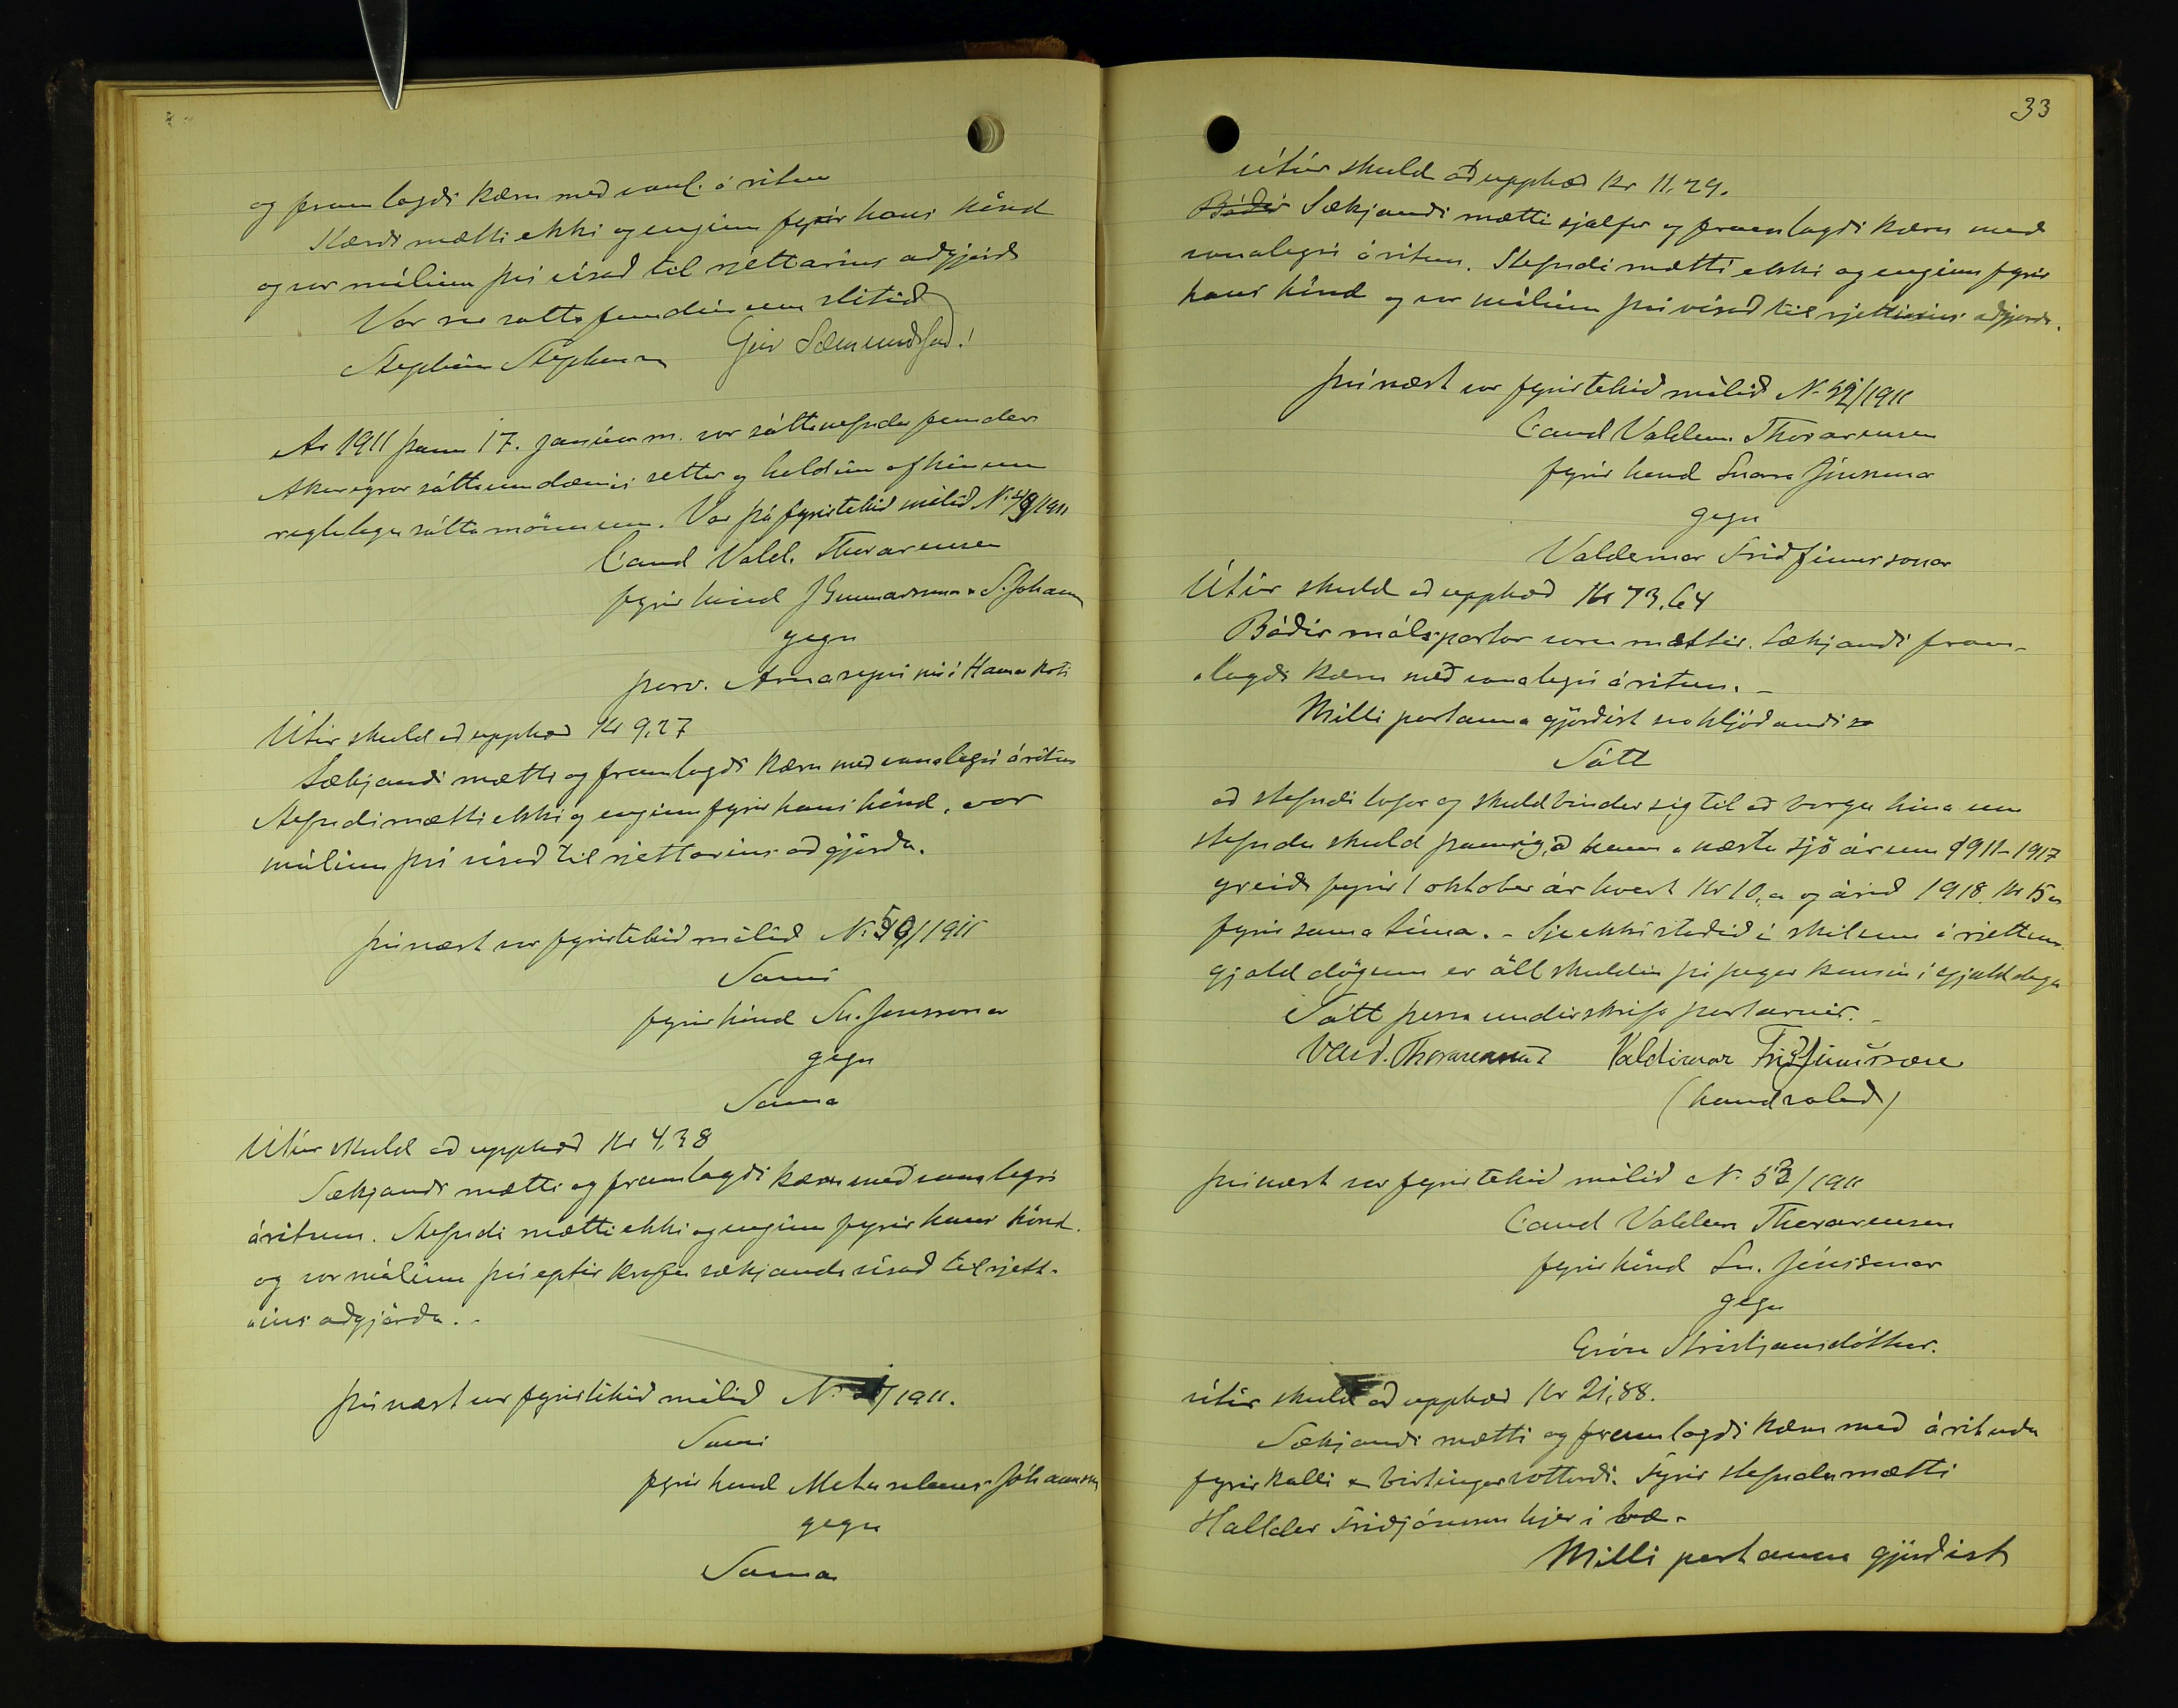 og framlagði kæru með vanl. áritun
Kærði mætti ekki og enginn fyrir hans hönd
og var málinu því vísað til rjettarins aðgjörða
Var svo sáttafundinum slitið
Stephán Stephensen Geir Sæmundsson!
Ár 1911 þann 17. janúar m. var sáttanefndar fundur
Akureyrar sáttaumdæmis settur og haldinn af hinum
reglulegu sáttamönnum. Var þá fyrirtekið málið N. 49/1911
Cand Vald. Thorarensen
fyrir hönd J Gunnarsson & S. Jóhann
gegn
þorv. Arnasyni nú í Hamarkoti
Útúr skuld að upphæð Kr 9,27
Sækjandi mætti og framlagði kæru með vanalegri áritun
Stefndi mætti ekki og enginn fyrir hans hönd, var
málinu því vísað til rjettarins aðgjörða.
því næst var fyrirtekið málið N. 50/1911
Sami
fyrir hönd Sn. Jónssonar
gegn
Sama
Útúr skuld að upphæð Kr 4,38
Sækjandi mætti og framlagði kæru með vanalegri
áritun. Stefndi mætti ekki og enginn fyrir hans hönd.
og var málinu því eptir kröfu sækjanda vísað til rjett-
arins aðgjörða. -
því næst var fyrirtekið málið N. /1911.
Sami
fyrir hönd Metusalems Jóhannss
gegn
Sama
33
útúr skuld að upphæð Kr 11,29.
Báðir Sækjandi mætti sjálfur og framlagði kæru með
vanalegri áritun. Stefndi mætti ekki og enginn fyrir
hans hönd og var málinu því vísað til rjettarins aðgjörða.
því næst var fyrirtekið málið N. 52/1911
Cand Valdem. Thorarensen
fyrir hönd Snorra Jónssonar
gegn
Valdemar Friðfinnssonar
Útúr skuld að upphæð Kr 73,64
Báðir málspartar voru mættir. Sækjandi fram-
lagði kæru með vanalegri áritun. -
Milli partanna gjörðist svohljóðandi
Sátt
að stefndi lofar og skuldbindur sig til að borga hina um
stefndu skuld þannig, að hann næstu sjö árum 1911-1917
greiðir fyrir 1 oktober ár hvert Kr 10,- og árið 1918. Kr 15
fyrir sama tíma. - Sje ekki staðið í skilum á rjettum
gjalddögum er öll skuldin þá þegar komin í gjalddaga
Sátt þessa undirskrifa partarnir. -
Vald. Thorarensen Valdimar Friðfinnsson
(handsalað)
því næst var fyrirtekið málið N. 53/1911
Cand Valdem Thorarensen
fyrir hönd Sn. Jónssonar
gegn
Kristjansdóttur.
útúr skuld að upphæð Kr 21,88.
Sækjandi mætti og framlagði kæru með árituðu
fyrirkalli & birtingarvottorði. Fyrir stefndu mætti
Halldór Friðjónsson hjer í bæ.
Milli partanna gjörðist